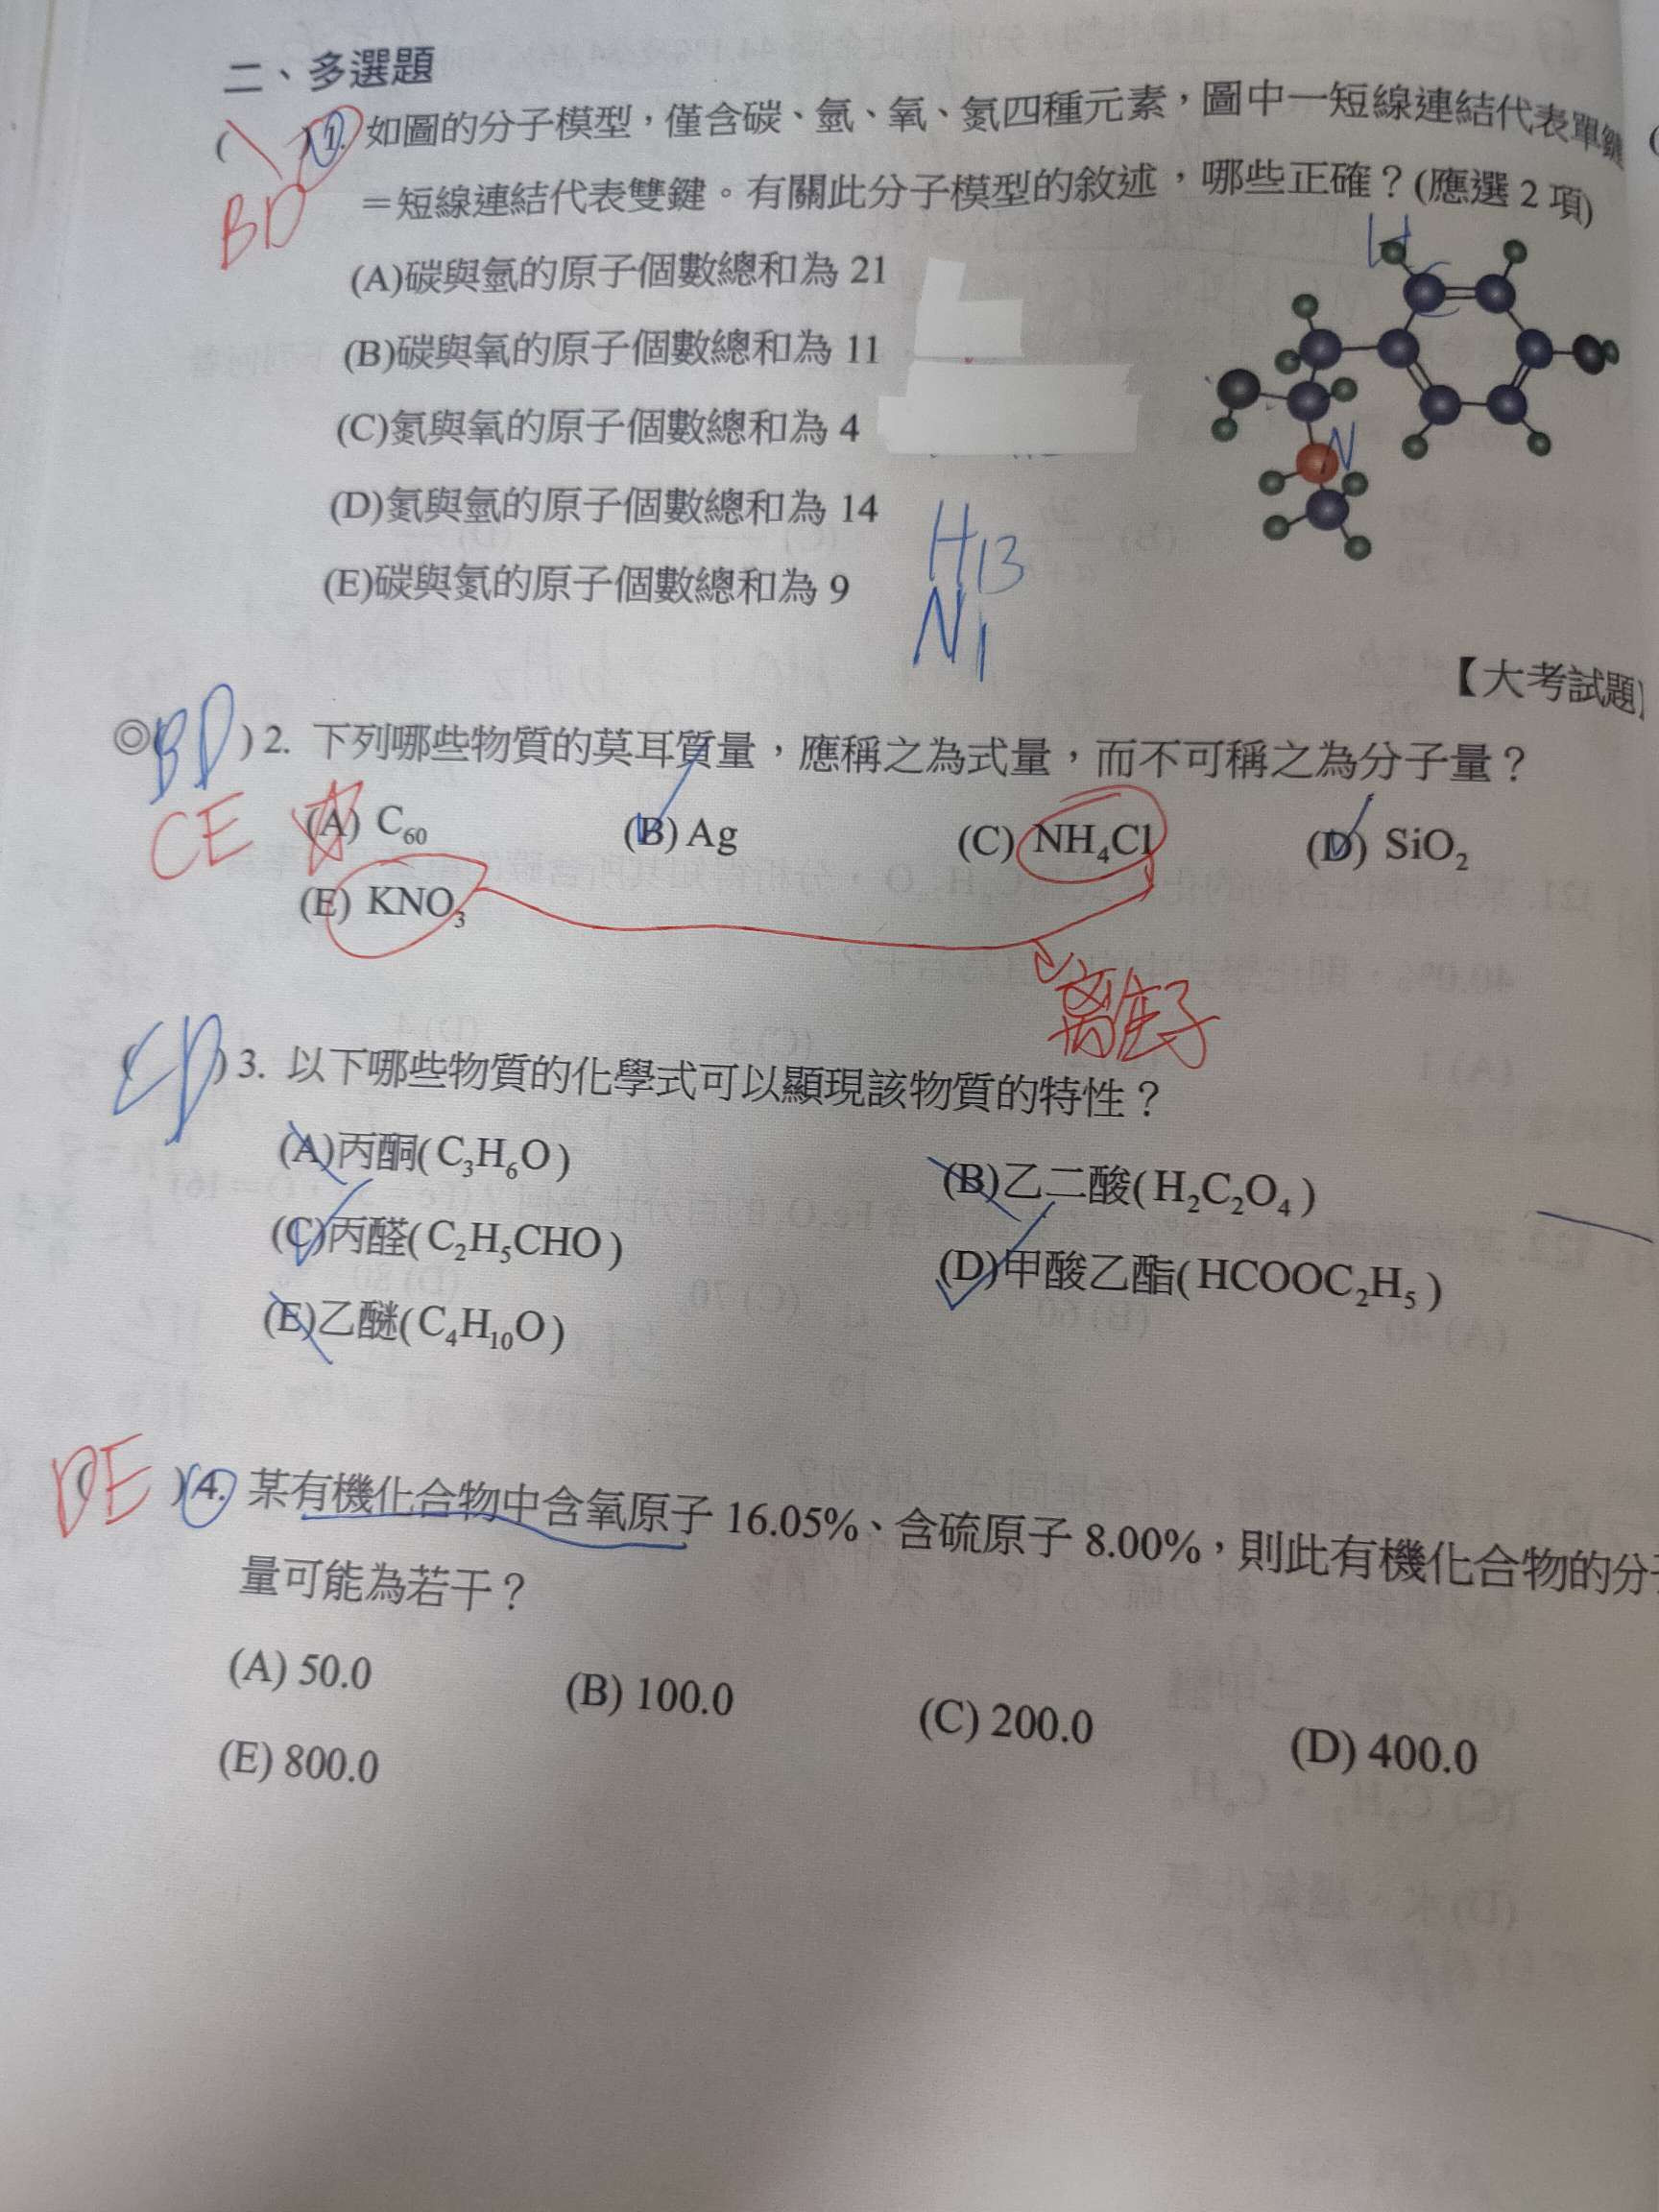 二、多選題
BD
( ) 1. 如圖的分子模型，僅含碳、氫、氧、氮四種元素，圖中一短線連結代表單鍵
＝短線連結代表雙鍵。有關此分子模型的敘述，哪些正確？(應選 2 項)
H
(A)碳與氫的原子個數總和為 21
(B)碳與氧的原子個數總和為 11
(C)氮與氧的原子個數總和為 4
N
(D)氮與氫的原子個數總和為 14
H13
(E)碳與氮的原子個數總和為 9
N1
【大考試題】
◎(BD) 2. 下列哪些物質的莫耳質量，應稱之為式量，而不可稱之為分子量？
CE
(A) C₆₀ (B) Ag (C) NH₄Cl (D) SiO₂
(E) KNO₃
離子
(CD) 3. 以下哪些物質的化學式可以顯現該物質的特性？
(A)丙酮(C₃H₆O) (B)乙二酸(H₂C₂O₄)
(C)丙醛(C₂H₅CHO) (D)甲酸乙酯(HCOOC₂H₅)
(E)乙醚(C₄H₁₀O)
(DE) 4. 某有機化合物中含氧原子 16.05%、含硫原子 8.00%，則此有機化合物的分
量可能為若干？
(A) 50.0 (B) 100.0 (C) 200.0 (D) 400.0
(E) 800.0